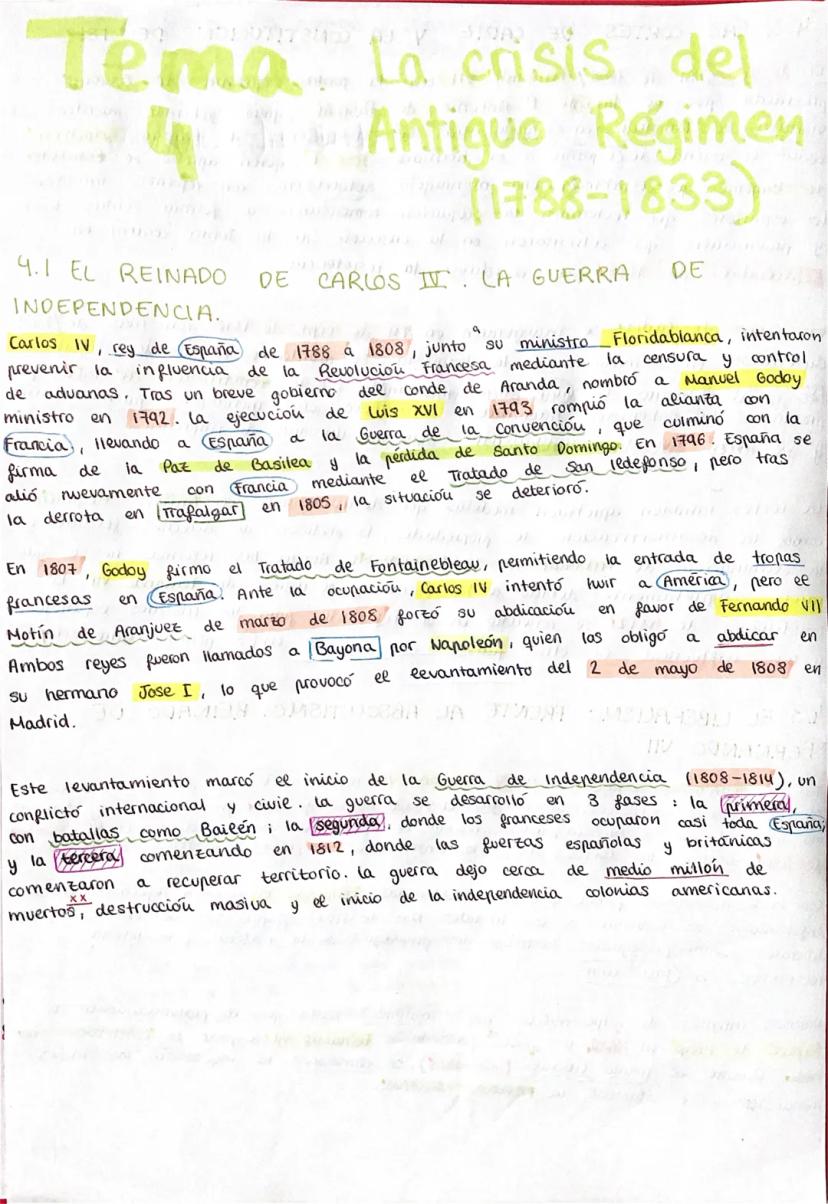 Tema 4. La crisis del
Antiguo Régimen
(1788-1833)
4.1 EL REINADO DE CARLOS IV. LA GUERRA DE
INDEPENDENCIA.
Carlos IV, rey de España de 1788 a 1808, junto a su ministro Floridablanca, intentaron
prevenir la influencia de la Revolución Francesa mediante la censura y control
de aduanas. Tras un breve gobierno del conde de Aranda, nombró a Manuel Godoy
ministro en 1792. La ejecución de Luis XVI en 1793 rompió la alianza con
Francia, llevando a España a la Guerra de la Convención, que culminó con la
firma de la Paz de Basilea y la pérdida de Santo Domingo. En 1796. España se
alió nuevamente con Francia mediante el Tratado de San Ildefonso, pero tras
la derrota en Trafalgar en 1805, la situación se deterioró.
En 1807, Godoy firmo el Tratado de Fontainebleau, permitiendo la entrada de tropas
francesas en España. Ante la ocupación, Carlos IV intentó huir a América, pero el
Motín de Aranjuez de marzo de 1808 forzó su abdicación en favor de Fernando VII
Ambos reyes fueron llamados a Bayona por Napoleón, quien los obligó a abdicar en
su hermano Jose I, lo que provocó el levantamiento del 2 de mayo de 1808 en
Madrid.
Este levantamiento marcó el inicio de la Guerra de Independencia (1808-1814), un
conflicto internacional y civil. La guerra se desarrolló en 3 fases: la primera,
con batallas como Bailén; la segunda, donde los franceses ocuparon casi toda España;
y la tercera comenzando en 1812, donde las fuerzas españolas y británicas
comenzaron a recuperar territorio. La guerra dejo cerca de medio millón de
muertos, destrucción masiva y el inicio de la independencia colonias americanas.